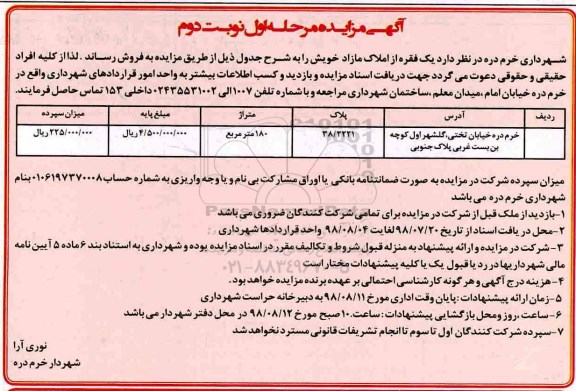 آگهی مزایده مرحله اول نوبت دوم
شهرداری خرم دره در نظر دارد یک فقره از املاک مازاد خویش را به شرح جدول ذیل از طریق مزایده به فروش رساند . لذا از کلیه افراد
حقیقی و حقوقی دعوت می گردد جهت دریافت اسناد مزایده و بازدید و کسب اطلاعات بیشتر به واحد امور قراردادهای شهرداری واقع در
خرم دره خیابان امام ،میدان معلم ،ساختمان شهرداری مراجعه و با شماره تلفن ۱۰۰۷الی ۰۲۴۳۵۵۳۱۰۰۲داخلی ۱۵۳ تماس حاصل فرمایند.
ردیف آدرس پلاک متراژ مبلغ پایه میزان سپرده
خرم دره خیابان تختی، گلشهر اول کوچه ۳۸/۳۲۲۱ ۱۸۰ متر مربع ۴/۵۰۰/۰۰۰/۰۰۰ ریال ۲۲۵/۰۰۰/۰۰۰ ریال
بن بست غربی پلاک جنوبی
میزان سپرده شرکت در مزایده به صورت ضمانتنامه بانکی یا اوراق مشارکت بی نام و یا وجه واریزی به شماره حساب ۰۱۰۶۱۹۷۳۷۰۰۰۸بنام
شهرداری خرم دره می باشد
۱-بازدید از ملک قبل از شرکت در مزایده برای تمامی شرکت کنندگان ضروری می باشد
۲-محل دریافت اسناد از تاریخ ۹۸/۰۷/۲۰ لغایت ۹۸/۰۸/۰۴ واحد قراردادها شهرداری
۳-شرکت در مزایده و ارائه پیشنهاد به منزله قبول شروط و تکالیف مقرر در اسناد مزایده بوده و شهرداری به استناد بند ۶ ماده ۵ آیین نامه
مالی شهرداریها در رد یا قبول یک یا کلیه پیشنهادات مختار است
۴-هزینه درج آگهی و هر گونه کارشناسی احتمالی بر عهده برنده مزایده خواهد بود.
۵-زمان ارائه پیشنهادات :پایان وقت اداری مورخ ۹۸/۰۸/۱۱ به دبیرخانه حراست شهرداری
۶-ساعت ،روز و محل بازگشایی پیشنهادات : ساعت۱۰ صبح مورخ ۹۸/۰۸/۱۲ در محل دفتر شهردار می باشد
۷-سپرده شرکت کنندگان اول تا سوم تا انجام تشریفات قانونی مسترد نخواهد شد
نوری آرا
شهردار خرم دره